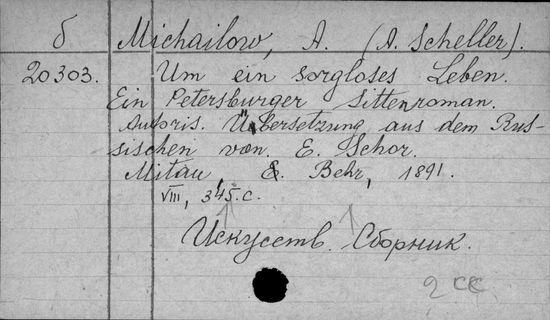 б Michailow, A. (A. Scheller).
20303. Um ein sorgloses Leben.
Ein Petersburger Sittenroman.
Autoris. Übersetzung aus dem Rus-
sischen von E. Schor.
Mitau, E. Behr, 1891.
VIII, 345 с.
Искусств. Сборник.
2 СС